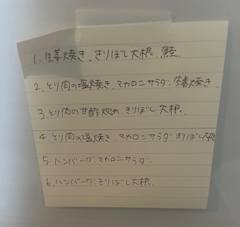 1. 生姜焼き、きりぼし大根、鮭
2. とり肉の塩焼き、マカロニサラダ、生姜焼き
3. とり肉の甘酢炒め、きりぼし大根、
4. とり肉の塩焼き、マカロニサラダ、きりぼし大根
5. ハンバーグ、マカロニサラダ
6. ハンバーグ、きりぼし大根、